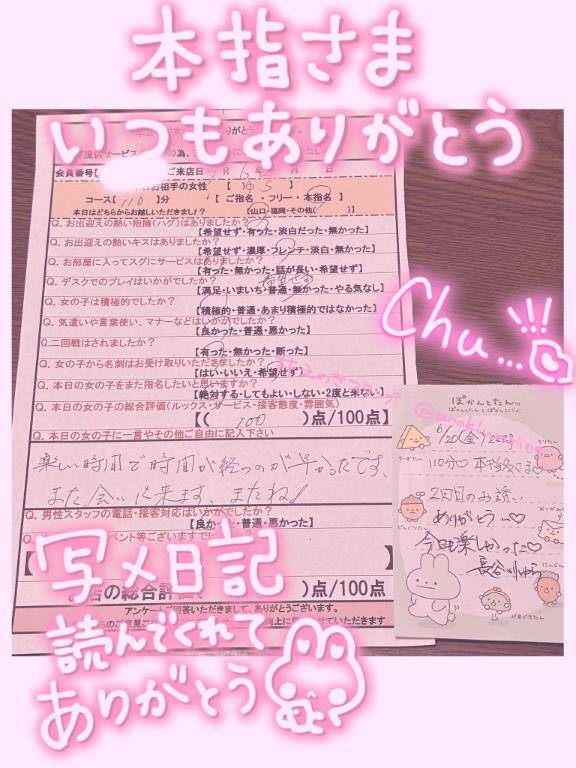 本指さま
いつもありがとう
会員番号【
ご来店日
お相手の女性
コース【110】分
【ご指名・フリー・本指名】
本日はどちらからお越しいただきました?
【山口・福岡・その他( )】
Q. お出迎えの熱い抱擁(ハグ)はありましたか?
【希望せず・有った・淡白だった・無かった】
Q. お出迎えの熱いキスはありましたか?
【希望せず・濃厚・フレンチ・淡白・無かった】
Q. お部屋に入ってスグにサービスはありましたか?
【有った・無かった・話が長い・希望せず】
Q. デスクでのプレイはいかがでしたか?
【満足・いまいち・普通・無かった・やる気なし】
Q. 女の子は積極的でしたか?
【積極的・普通・あまり積極的ではなかった】
Q. 気遣いや言葉使い、マナーなどはいかがでしたか?
【良かった・普通・悪かった】
Q.二回戦はされましたか?
【有った・無かった・断った】
Q. 女の子から名刺はお受け取りいただきましたか?
【はい・いいえ・希望せず】
Q. 本日の女の子をまた指名したいと思いますか?
【絶対する・してもよい・しない・2度と来ない】
Q. 本日の女の子の総合評価(ルックス・サービス・接客態度・雰囲気)
【( 100 )点/100点】
Q. 本日の女の子に一言やその他ご自由に記入下さい
楽しい時間で時間が経つのが早かったです。
また会いに来ます、またね♪
Q. 男性スタッフの電話・接客対応はいかがでしたか?
【良かった・普通・悪かった】
)点/100点】
アンケートご回答いただきまして、ありがとうございます。
Chu...!!!
ぽかんとたん
6/20(金)
110分♡ 本指名さま♡
2回目のお誘い
ありがとう〜♡
今日も楽しかった♡
写メ日記
読んでくれて
ありがとう